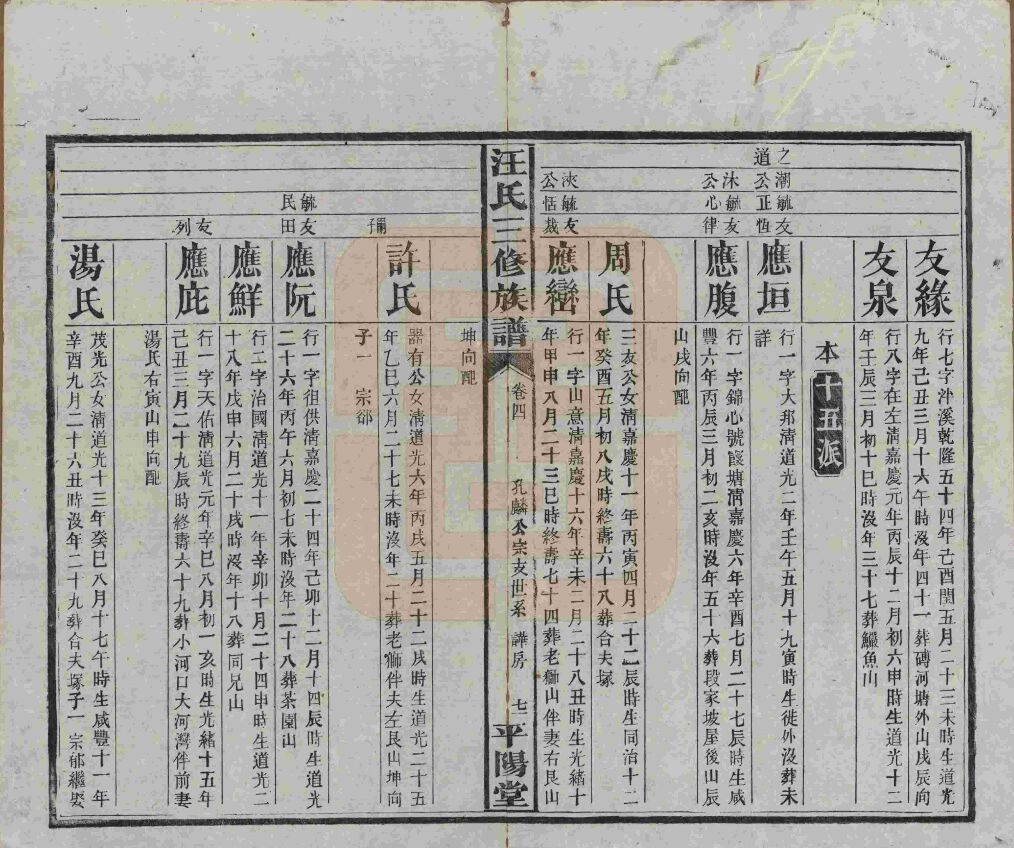 友緣
行七字冲溪乾隆五十四年己酉閏五月二十三未時生道光
九年己丑三月十六午時沒年四十一葬磚河塘外山戌辰向
友泉
行八字在左清嘉慶元年丙辰十二月初六申時生道光十二
年壬辰三月初十巳時沒年三十七葬鱷魚山
本十五派
之潮毓友
道公正恆
應垣
行一字大邦清道光二年壬午五月十九寅時生徙外沒葬未
詳
沐毓友
公心律
應腹
行一字錦心號霞塘清嘉慶六年辛酉七月二十七辰時生咸
豐六年丙辰三月初二亥時沒年五十六葬段家坡屋後山辰
山戌向配
周氏
三友公女清嘉慶十一年丙寅四月二十二辰時生同治十二
年癸酉五月初八戌時終壽六十八葬合夫塚
浹毓友
公恬裁
應巒
行一字山意清嘉慶十六年辛未二月二十八丑時生光緒十
年甲申八月二十三巳時終壽七十四葬老獅山伴妻右艮山
汪氏三修族譜
卷四
孔麟公宗支世系
譁房
七
平陽堂
坤向配
許氏
嗣子
器有公女清道光六年丙戌五月二十二戌時生道光二十五
年乙巳六月二十七未時沒年二十葬老獅伴夫左艮山坤向
子一 宗郤
毓友
民田
應阮
行一字徂供清嘉慶二十四年己卯十二月十四辰時生道光
二十六年丙午六月初七未時沒年二十八葬茶園山
應鮮
行二字治國清道光十一年辛卯十月二十四申時生道光二
十八年戊申六月二十戌時沒年十八葬同兄山
友列
應庇
行一字天佑清道光元年辛巳八月初一亥時生光緒十五年
己丑三月二十九辰時終壽六十九葬小河口大河灣伴前妻
湯氏右寅山申向配
湯氏
茂光公女清道光十三年癸巳八月十七午時生咸豐十一年
辛酉九月二十六丑時沒年二十九葬合夫塚子一宗郁繼娶